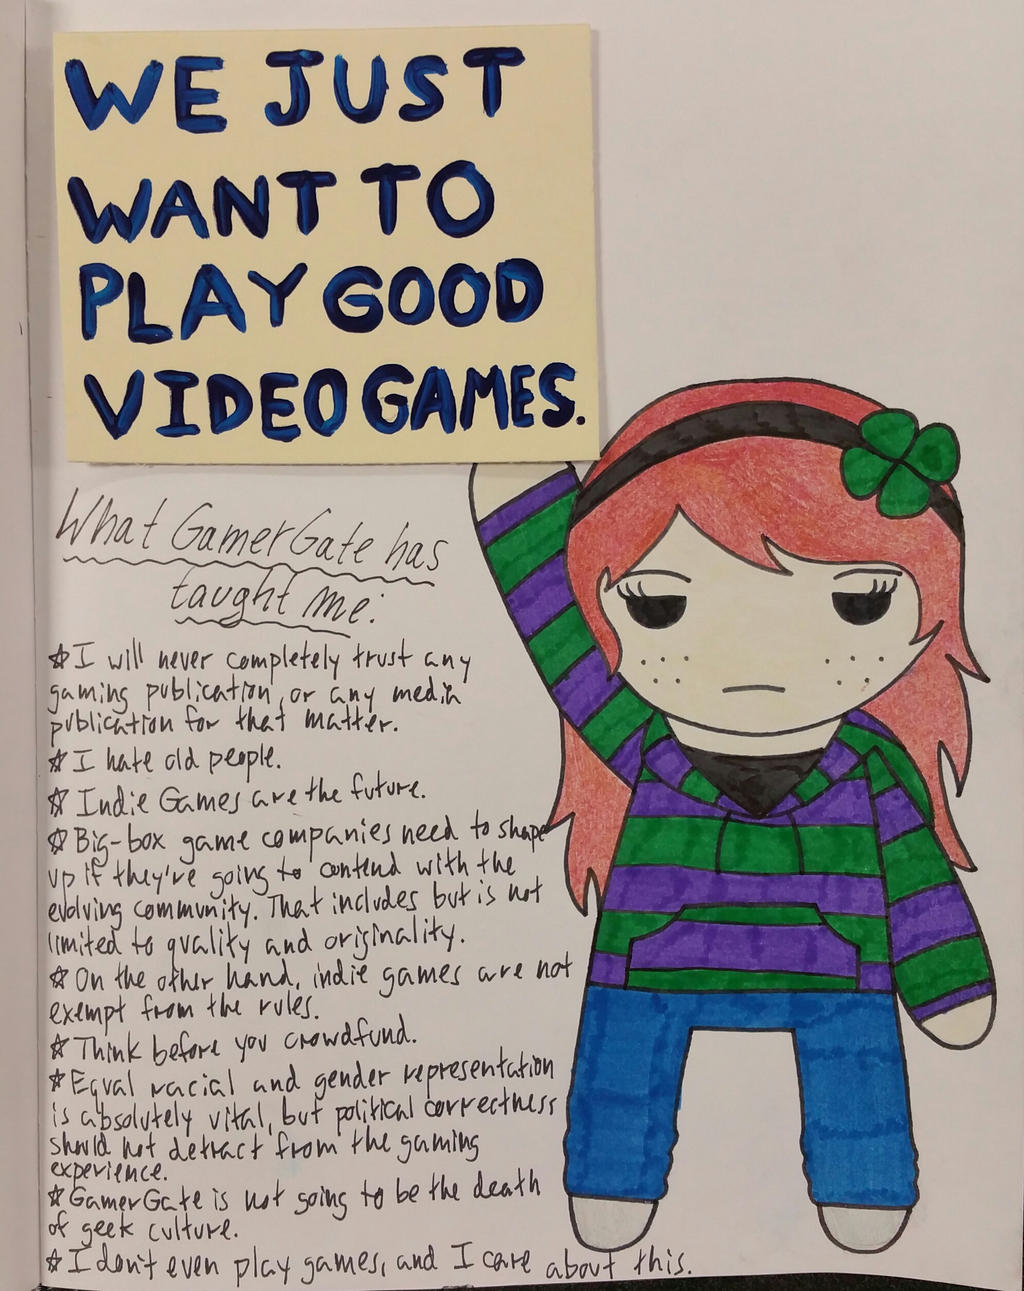 WE JUST
WANT TO
PLAY GOOD
VIDEO GAMES.
What GamerGate has
taught me:
☆ I will never completely trust any
gaming publication, or any media
publication for that matter.
☆ I hate old people.
☆ Indie Games are the future.
☆ Big-box game companies need to shape
up if they're going to contend with the
evolving community. That includes but is not
limited to quality and originality.
☆ On the other hand, indie games are not
exempt from the rules.
☆ Think before you crowdfund.
☆ Equal racial and gender representation
is absolutely vital, but political correctness
should not detract from the gaming
experience.
☆ GamerGate is not going to be the death
of geek culture.
☆ I don't even play games, and I care about this.